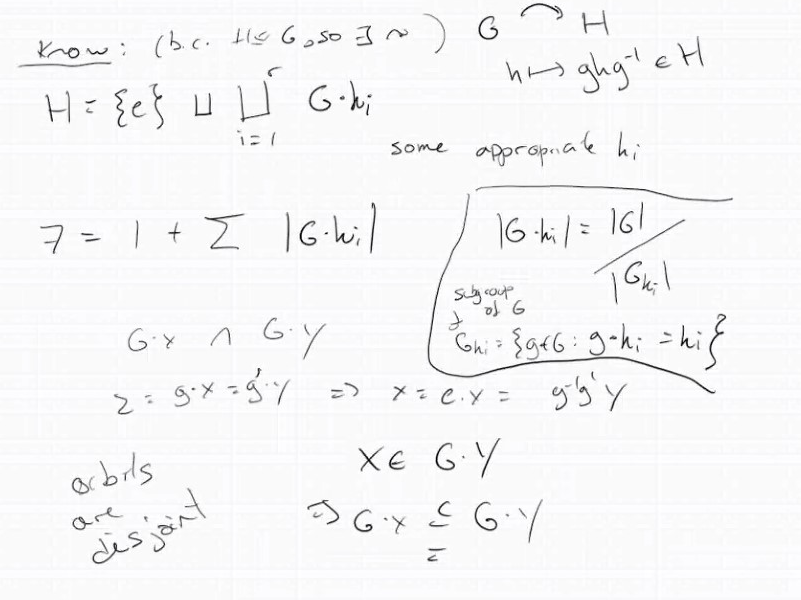 Know: (b.c. H ⊴ G, so ∃ ~) G ↷ H
h ↦ ghg⁻¹ ∈ H
H = {e} ⊔ ⨆_{i=1}^{r} G·hᵢ
some appropriate hᵢ
7 = 1 + Σ |G·hᵢ|
|G·hᵢ| = |G| / |G_{hᵢ}|
subgroup
of G
G_{hᵢ} = {g∈G : g·hᵢ = hᵢ}
G·x ∩ G·y
z = g·x = g'·y ⇒ x = e.x = g⁻¹g'y
x ∈ G·y
orbits
are
disjoint
⇒ G·x ⊆ G·y
=